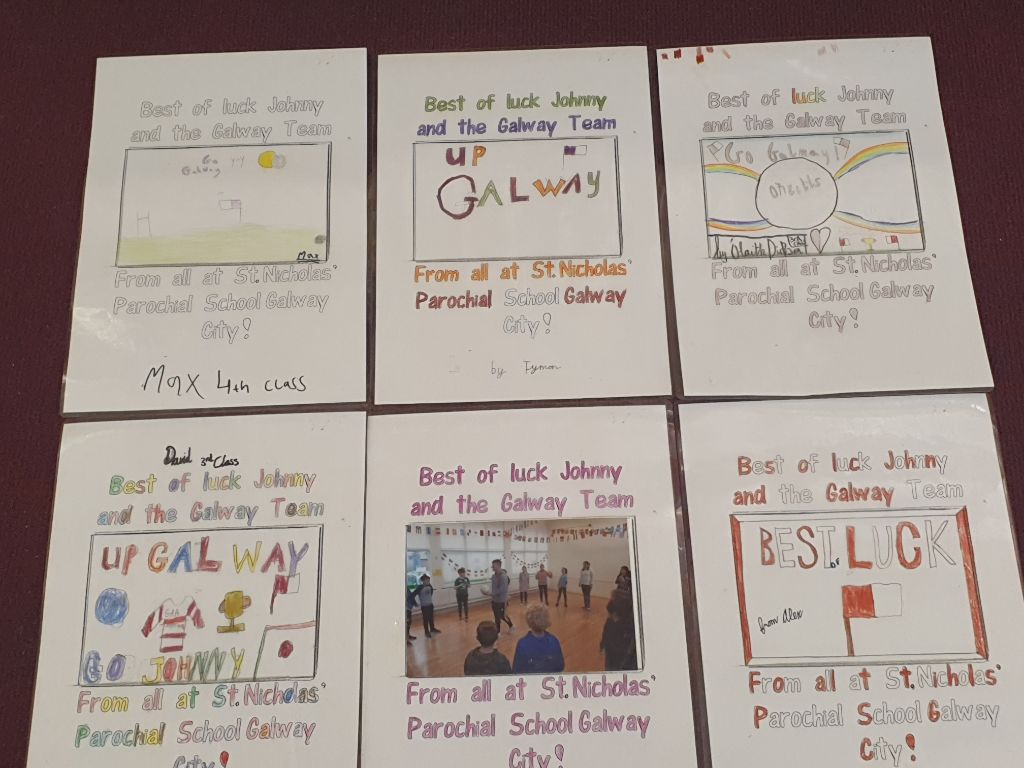 Best of luck Johnny
and the Galway Team
Go
Galway
Max
From all at St. Nicholas'
Parochial School Galway
City!
Max 4th class
Best of luck Johnny
and the Galway Team
UP
GALWAY
From all at St. Nicholas'
Parochial School Galway
City!
by
Best of luck Johnny
and the Galway Team
Go Galway!
by
From all at St. Nicholas'
Parochial School Galway
City!
David 3rd Class
Best of luck Johnny
and the Galway Team
UP GALWAY
GO JOHNNY
From all at St. Nicholas'
Parochial School Galway
City!
Best of luck Johnny
and the Galway Team
From all at St. Nicholas'
Parochial School Galway
City!
Best of luck Johnny
and the Galway Team
BEST OF LUCK
from Alex
From all at St. Nicholas'
Parochial School Galway
City!